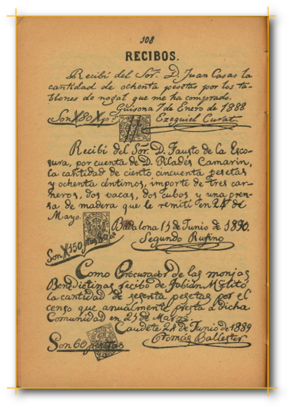 108
RECIBOS.
Recibí del Sor. D. Juan Casas la
cantidad de ochenta pesetas por los ta-
blones de nogal que me ha comprado.
Guisona 7 de Enero de 1888
Son
Ezequiel Curat
Recibí del Sor. D. Fausto de la Esco-
sura, por cuenta de D. Pilades Camarin,
la cantidad de ciento cincuenta pesetas
y ochenta céntimos, importe de tres car-
neros, dos vacas, dos cubos y una pren-
sa de madera que le remití en 28 de
Mayo.
Badalona 15 de Junio de 1890.
Segundo Rufino
Como Procurador de las monjas
Benedictinas recibo de Fabián
la cantidad de sesenta pesetas por el
censo que anualmente presta a dicha
Comunidad en 25 de Marzo.
Caudete 24 de Junio de 1889
Son 60 pesetas
Tomás Ballester